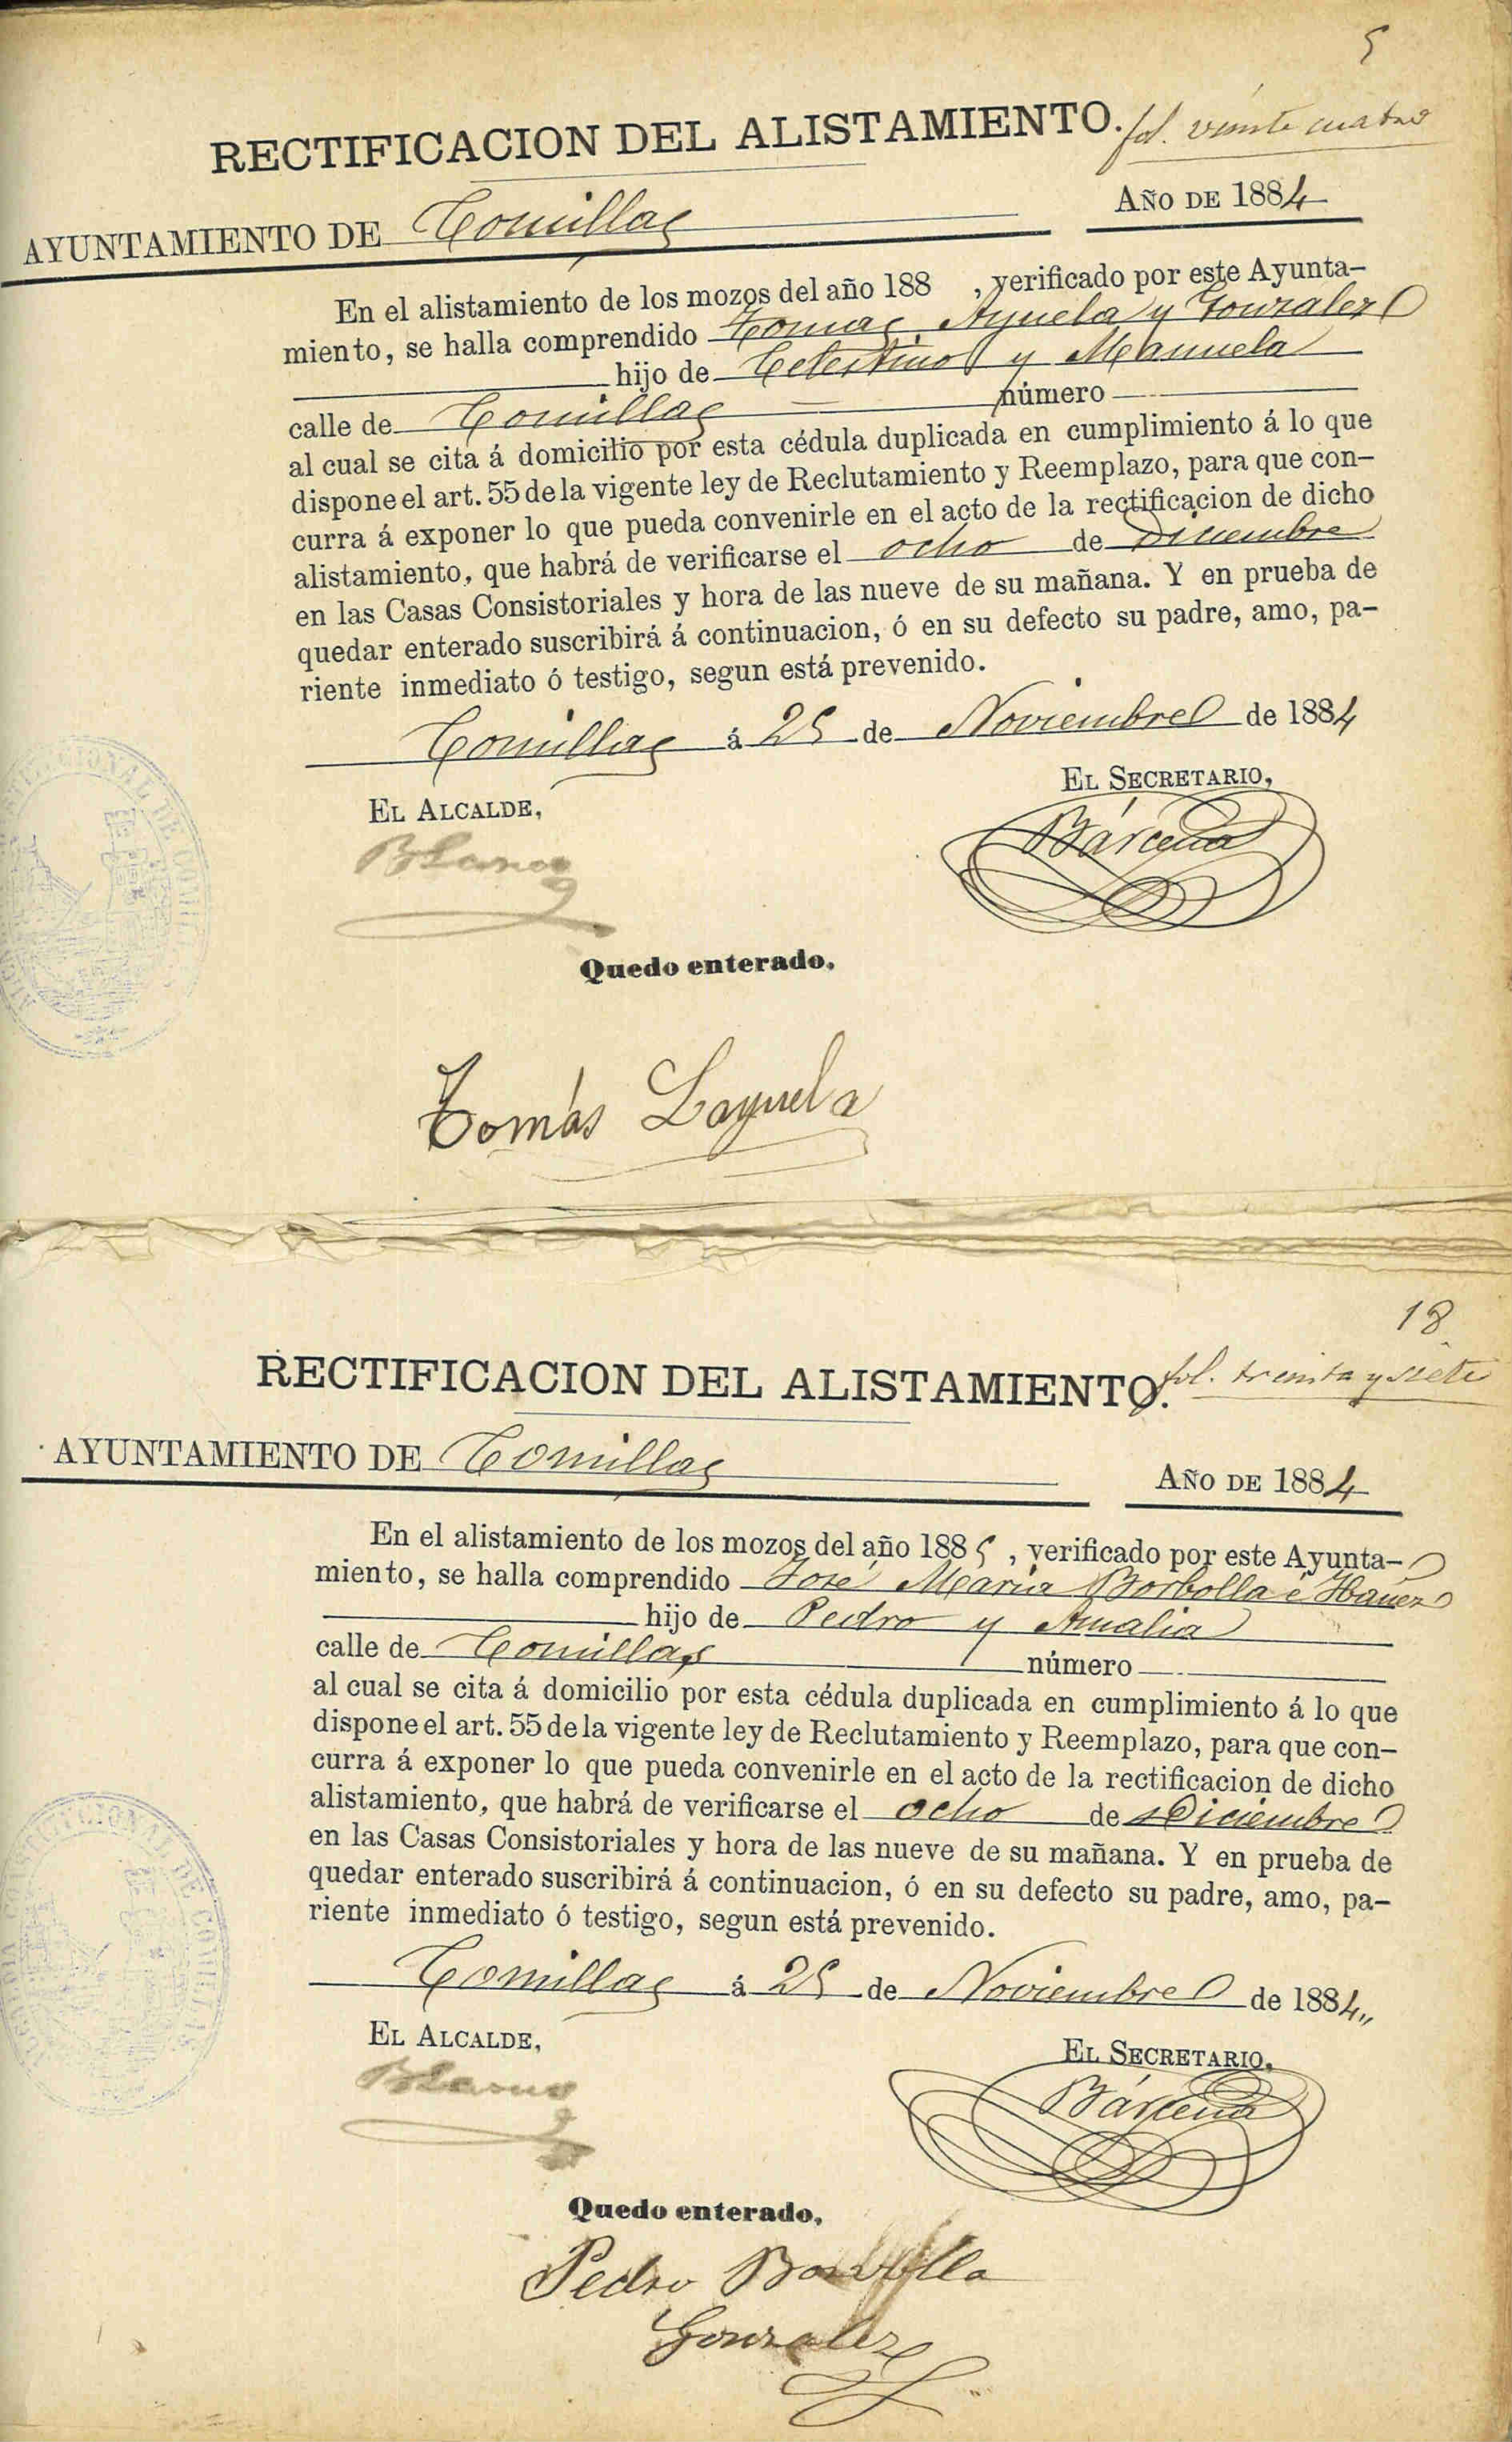 5
RECTIFICACION DEL ALISTAMIENTO. fol. veinte cuatro
AÑO DE 1884
AYUNTAMIENTO DE Comillas
En el alistamiento de los mozos del año 188 , verificado por este Ayunta-
miento, se halla comprendido Tomas Ayuela y Gonzalez
hijo de Celestino y Manuela
calle de Comillas número
al cual se cita á domicilio por esta cédula duplicada en cumplimiento á lo que
dispone el art. 55 de la vigente ley de Reclutamiento y Reemplazo, para que con-
curra á exponer lo que pueda convenirle en el acto de la rectificacion de dicho
alistamiento, que habrá de verificarse el ocho de Diciembre
en las Casas Consistoriales y hora de las nueve de su mañana. Y en prueba de
quedar enterado suscribirá á continuacion, ó en su defecto su padre, amo, pa-
riente inmediato ó testigo, segun está prevenido.
Comillas á 25 de Noviembre de 1884
EL ALCALDE, EL SECRETARIO,
Bárcena
Quedo enterado,
Tomás Layuela
18
RECTIFICACION DEL ALISTAMIENTO. fol. treinta y siete
AYUNTAMIENTO DE Comillas
AÑO DE 1884
En el alistamiento de los mozos del año 1885, verificado por este Ayunta-
miento, se halla comprendido José Maria Borbolla é Ibañez
hijo de Pedro y Amalia
calle de Comillas número
al cual se cita á domicilio por esta cédula duplicada en cumplimiento á lo que
dispone el art. 55 de la vigente ley de Reclutamiento y Reemplazo, para que con-
curra á exponer lo que pueda convenirle en el acto de la rectificacion de dicho
alistamiento, que habrá de verificarse el ocho de Diciembre
en las Casas Consistoriales y hora de las nueve de su mañana. Y en prueba de
quedar enterado suscribirá á continuacion, ó en su defecto su padre, amo, pa-
riente inmediato ó testigo, segun está prevenido.
Comillas á 25 de Noviembre de 1884,,
EL ALCALDE, EL SECRETARIO,
Bárcena
Quedo enterado,
Pedro Borbolla
Gonzalez